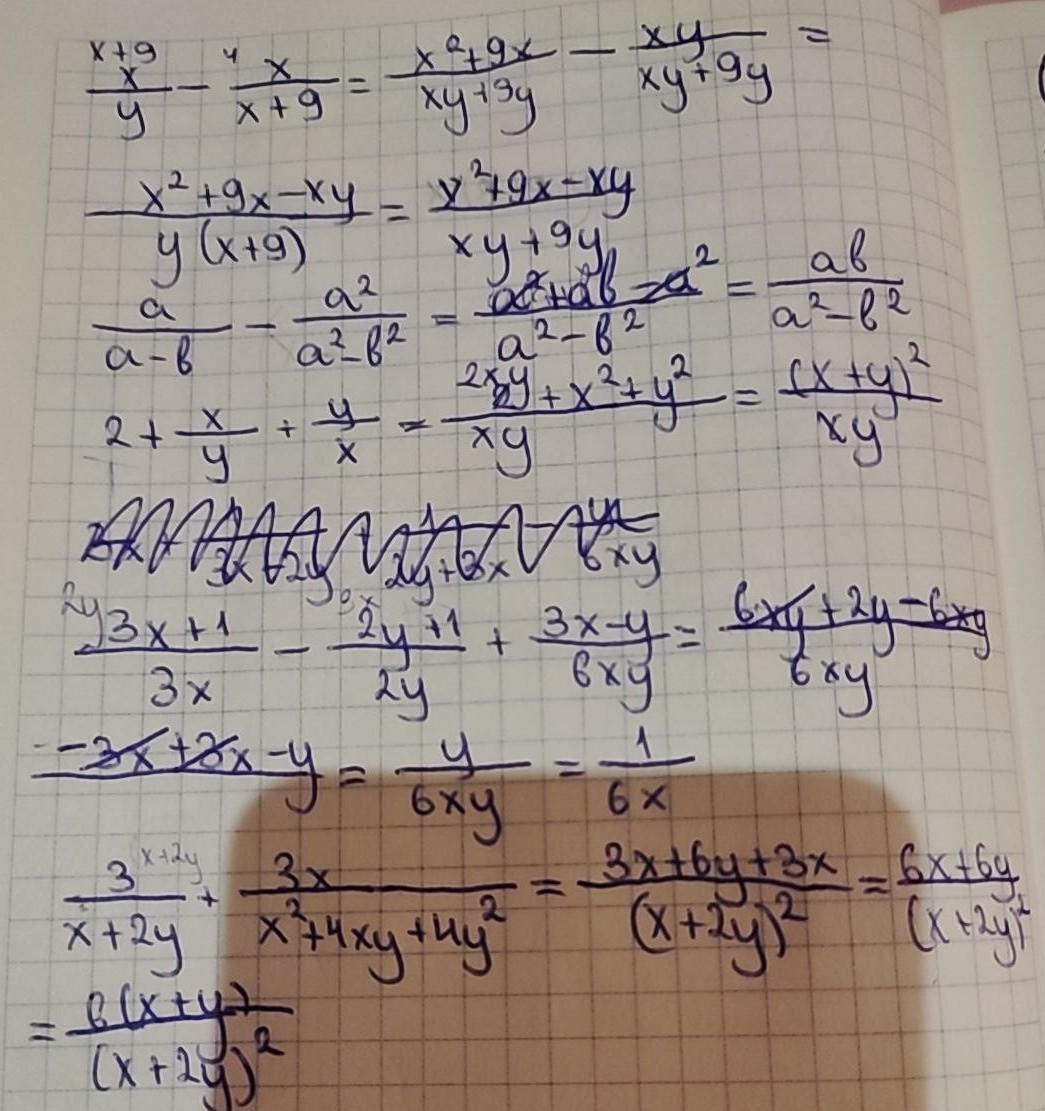 x+9 x/y − y x/(x+9) = (x²+9x)/(xy+9y) − xy/(xy+9y) =
(x²+9x−xy)/(y(x+9)) = (x²+9x−xy)/(xy+9y)
a/(a−b) − a²/(a²−b²) = (a²+ab−a²)/(a²−b²) = ab/(a²−b²)
2 + x/y + y/x = (2xy+x²+y²)/(xy) = (x+y)²/(xy)
2y (3x+1)/(3x) − 3x (2y+1)/(2y) + (3x−y)/(6xy) = (6xy+2y−6xy)/(6xy)
−3x+3x−y = y/(6xy) = 1/(6x)
3 x+2y/(x+2y) + 3x/(x²+4xy+4y²) = (3x+6y+3x)/(x+2y)² = (6x+6y)/(x+2y)²
= 6(x+y)/(x+2y)²